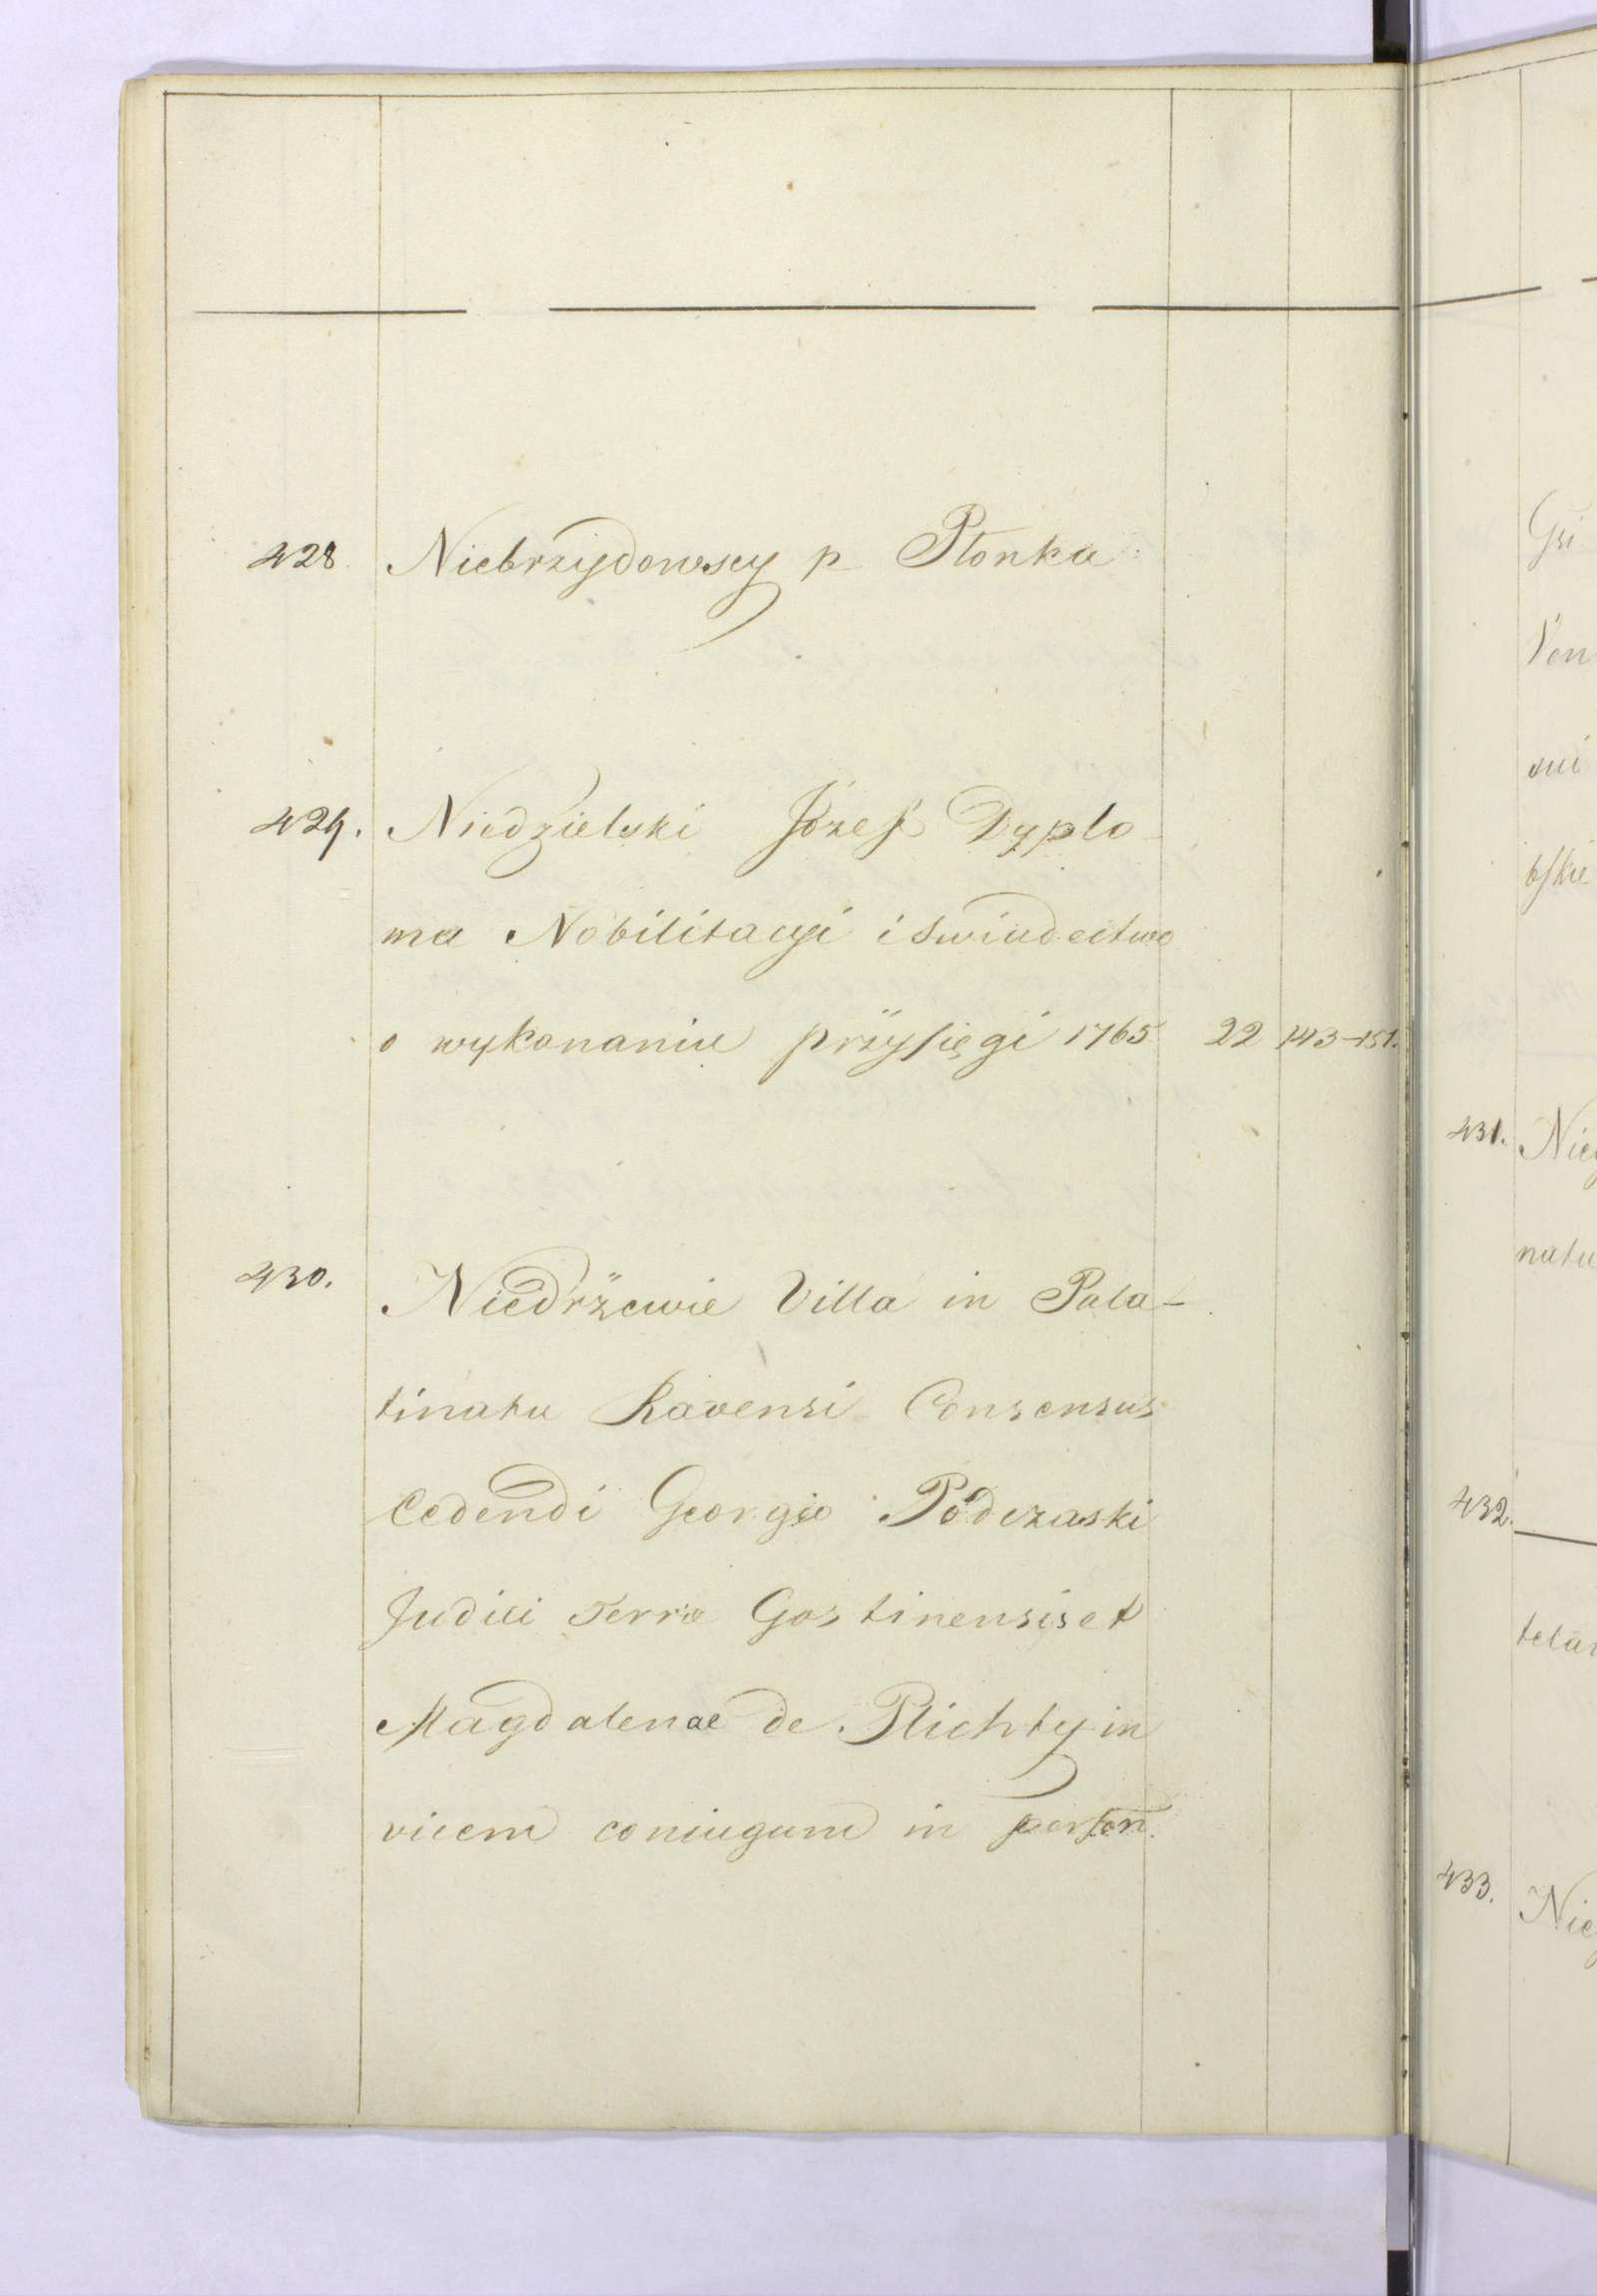 428. Niebrzydowscy p Płonka.
429. Niedzielski Józef Dyplo-
ma Nobilitacyi i swiadectwo
o wykonaniu przysięgi 1765 22 143-151.
430. Niedrżewie Villa in Pala-
tinatu Ravensi Consensus
Cedendi Georgio Podczaski
Judici Terrae Gostinensis et
Magdalenae de Plichty in
vicem coniugum in person.
Gri
Ven
sui
bskie
431. Nie
natu
432.
433. Nie